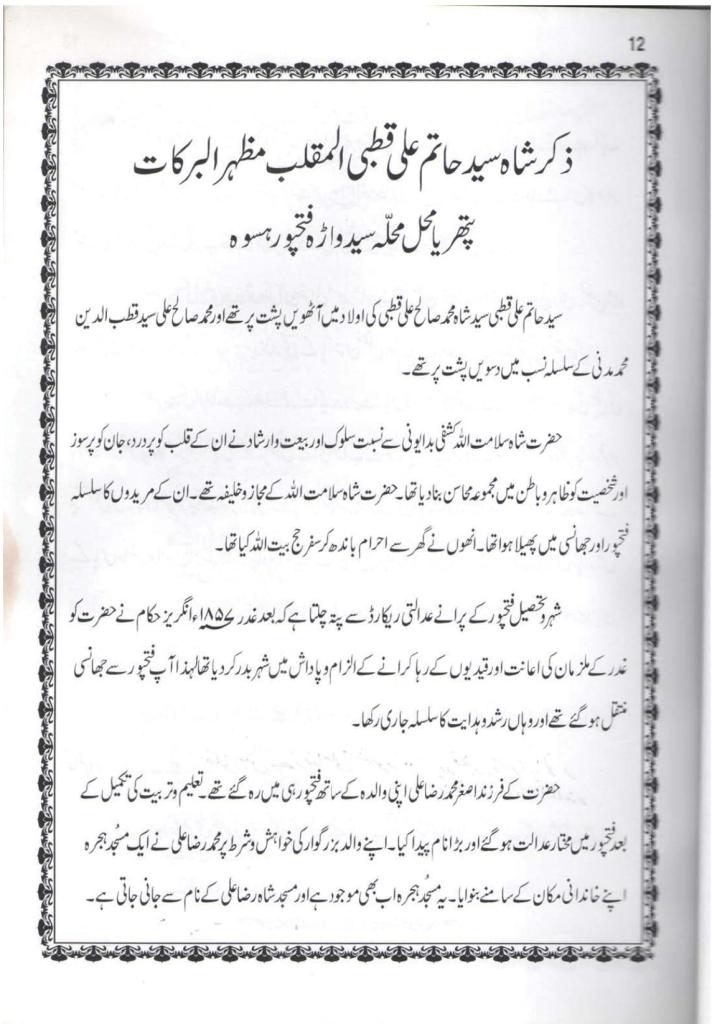 12
ذکر شاہ سید حاتم علی قطبی المقلب مظہر البرکات
پتھریا محل محلّہ سید واڑہ فتحپور ہسوہ
سید حاتم علی قطبی سید شاہ محمد صالح علی قطبی کی اولاد میں آٹھویں پشت پر تھے اور محمد صالح علی سید قطب الدین
محمد مدنی کے سلسلہ نسب میں دسویں پشت پر تھے۔
حضرت شاہ سلامت اللہ کشفی بدایونی سے نسبت سلوک اور بیعت وارشاد نے ان کے قلب کو پر درد، جان کو پرسوز
اور شخصیت کو ظاہر و باطن میں مجموعہ محاسن بنا دیا تھا۔ حضرت شاہ سلامت اللہ کے مجاز و خلیفہ تھے۔ ان کے مریدوں کا سلسلہ
فتحپور اور جھانسی میں پھیلا ہوا تھا۔ انھوں نے گھر سے احرام باندھ کر سفر حج بیت اللہ کیا تھا۔
شہر و تحصیل فتحپور کے پرانے عدالتی ریکارڈ سے پتہ چلتا ہے کہ بعد غدر ۱۸۵۷ء انگریز حکام نے حضرت کو
غدر کے ملزمان کی اعانت اور قیدیوں کے رہا کرانے کے الزام و پاداش میں شہر بدر کر دیا تھا لہٰذا آپ فتحپور سے جھانسی
منتقل ہو گئے تھے اور وہاں رشد و ہدایت کا سلسلہ جاری رکھا۔
حضرت کے فرزند اصغر محمد رضا علی اپنی والدہ کے ساتھ فتحپور ہی میں رہ گئے تھے۔ تعلیم و تربیت کی تکمیل کے
بعد فتحپور میں مختار عدالت ہو گئے اور بڑا نام پیدا کیا۔ اپنے والد بزرگوار کی خواہش و شرط پر محمد رضا علی نے ایک مسجد ہجرہ
اپنے خاندانی مکان کے سامنے بنوایا۔ یہ مسجد ہجرہ اب بھی موجود ہے اور مسجد شاہ رضا علی کے نام سے جانی جاتی ہے۔